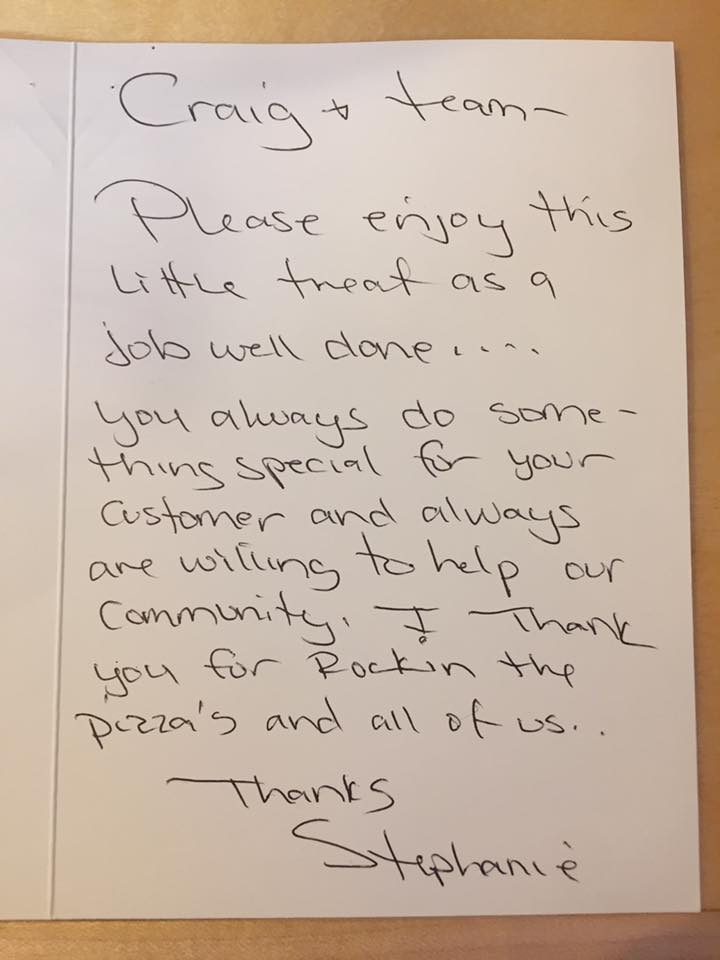 Craig + team-
Please enjoy this
little treat as a
job well done.....
you always do some-
thing special for your
customer and always
are willing to help our
community. I Thank
you for Rockin the
pizza's and all of us..
Thanks
Stephanie